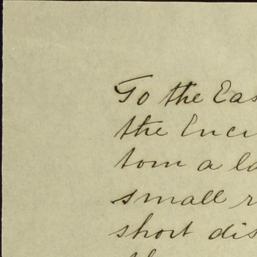 To the Eas
the Enci
tom a la
small r
short dis